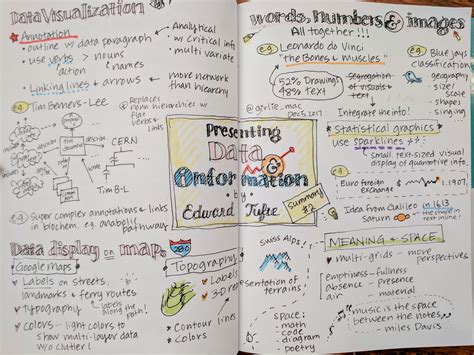 Data Visualization
Annotation
- outline w/ data paragraph
- use verbs > nouns/
action names)
Linking lines & arrows
Analytical
w/ Critical info
multi variate
more network
than hierarchy
e.g. Tim Berners-Lee
Replaces
noun hierarchies w/
flat
verbs &
links
CERN
Tim B-L
e.g. Super complex annotations & links
in biochem. e.g. anabolic
pathway
Data display on map
280
Google Maps
Labels on streets,
landmarks & ferry routes
Typography
Labels
along path!
Colors - light colors to
show multi-layer data
w/o clutter!
Topography
Labels
3D rep
Contour lines
Colors
Presenting
Data
&
Information
by
Edward Tufte
Summary
#2
Words, Numbers & images
All together!!!
e.g. Leonardo do Vinci
"the Bones & muscles"
52% Drawings
48% Text
Segregation
of visuals &
text
Integrate the info!
@givlie_mac
Dec 5, 2017
e.g. Blue jays
classification
geography
size/
scale
shapes
Statistical graphics
use sparklines
Small, text-sized visual
display of quantative info.
Euro foreign
exchange
$1.1907
Idea from Galileo in 1613
Saturn
the shape in
text inline!
Swiss Alps!
presentation of
terrains
Space:
math
code
diagram
poetry
MEANING + SPACE
multi-grids - more
perspectives
emptiness - fullness
absence - presence
air - material
music is the space
between the notes
- miles Davis